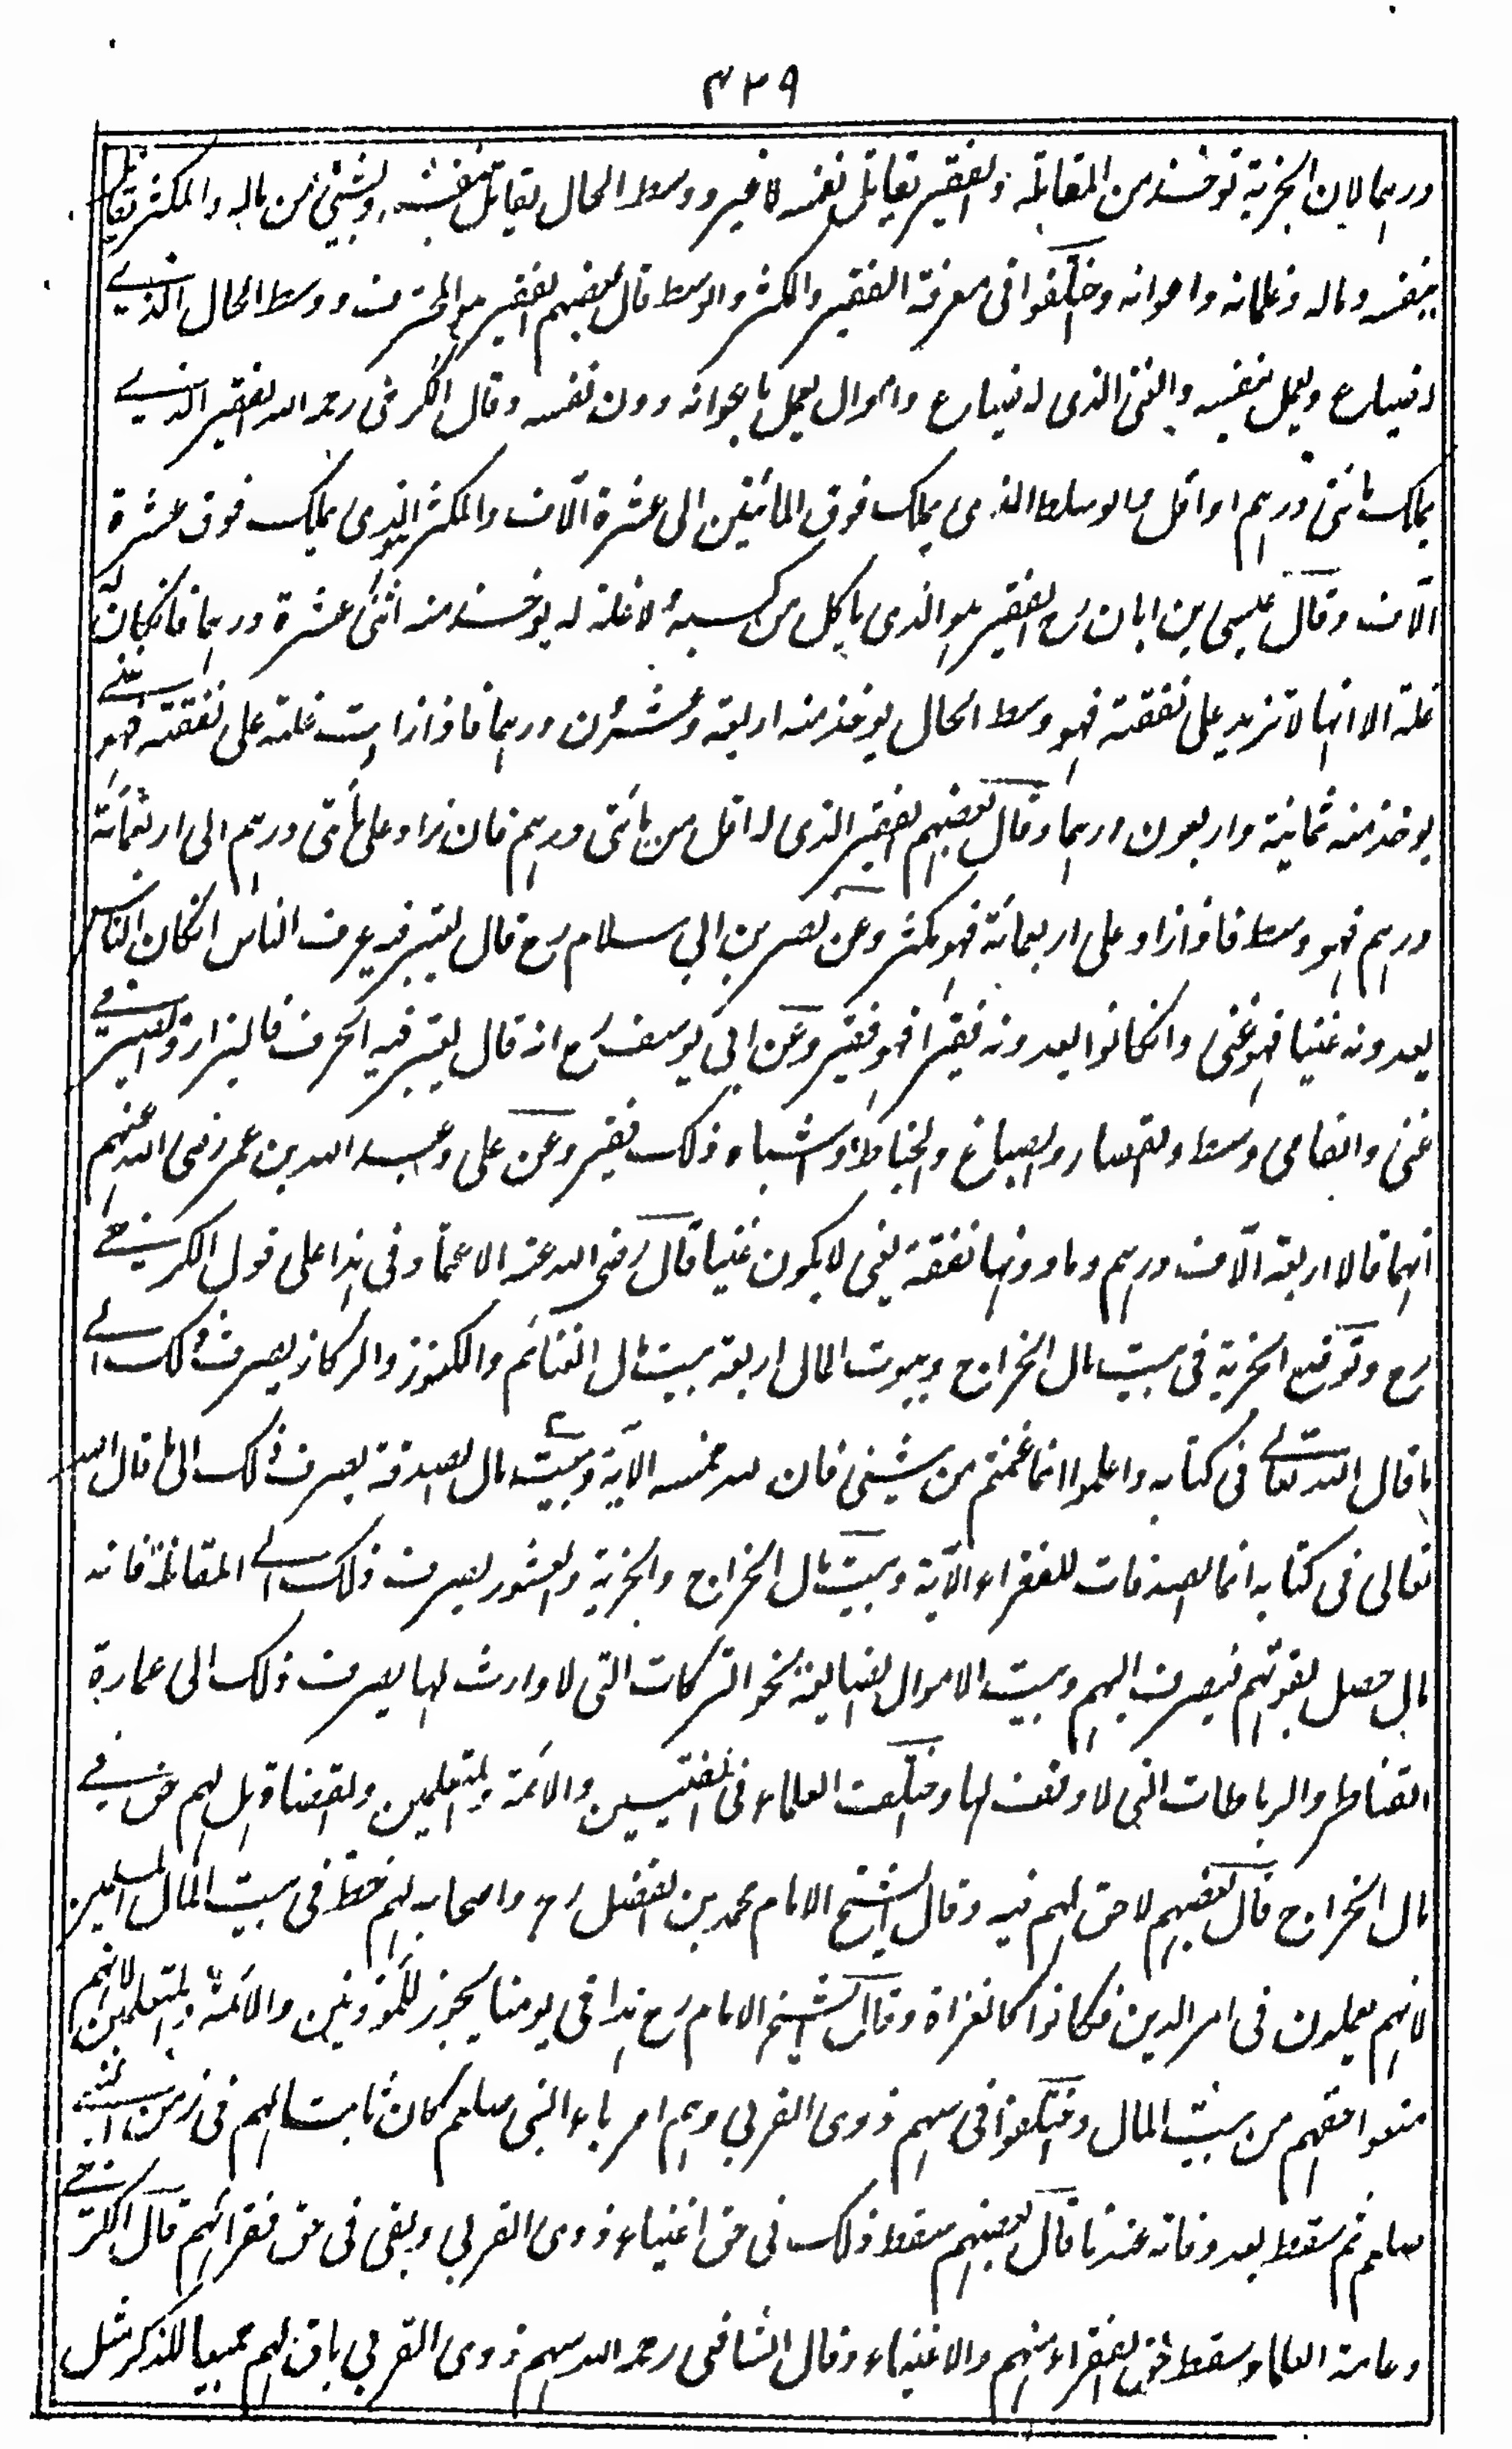 ٤٢٩
درهما لان الجزية توخذ من المقابلة والفقير يقاتل بنفسه لا غير ووسط الحال يقاتل بنفسه وبشئ من ماله والمكثر يقاتل
بنفسه وماله وغلمانه واعوانه واختلفوا فى معرفة الفقير والمكثر والوسط قال بعضهم الفقير هو المحترف ووسط الحال الذى
له ضياع ويعمل بنفسه والغنى الذى له ضياع واموال يعمل باعوانه دون نفسه وقال الكرخى رحمه الله الفقير الذى
يملك مائتى درهم او اقل والوسط الذى يملك فوق المأتين الى عشرة آلاف والمكثر الذى يملك فوق عشرة
آلاف وقال عيسى بن ابان رح الفقير هو الذى ياكل من كسبه لا غلة له يوخذ منه اثنى عشرة درهما فانكان له
غلة الا انها لا تزيد على نفقته فهو وسط الحال يوخذ منه اربعة وعشرون درهما فاذا زادت غلته على نفقته فهو غنى
يوخذ منه ثمانية واربعون درهما وقال بعضهم الفقير الذى له اقل من مائتى درهم فان زاد على مأتى درهم الى اربعمائة
درهم فهو وسط فاذا زاد على اربعمائة فهو مكثر وعن نصر بن ابى سلام رح قال يعتبر فيه عرف الناس انكان الناس
يعدونه غنيا فهو غنى وانكانوا يعدونه فقيرا فهو فقير وعن ابى يوسف رح انه قال يعتبر فيه الحرف فالبزاز والصيرفى
غنى والفامى وسط والقصار والصباغ والخياط واشباه ذلك فقير وعن على وعبد الله بن عمر رضى الله عنهم
انهما قالا اربعة آلاف درهم وما دونها نفقة يعنى لا يكون غنيا قال رضى الله عنه الاعتماد فى هذا على قول الكرخى
رح وتوضع الجزية فى بيت مال الخراج وبيوت المال اربعة بيت مال الغنائم والكنوز والركاز يصرف ذلك الى
ما قال الله تعالى فى كتابه واعلموا انما غنمتم من شيئى فان لله خمسه الآية وبيت مال الصدقة يصرف ذلك الى ما قال الله
تعالى فى كتابه انما الصدقات للفقراء الآية وبيت مال الخراج والجزية والعشور يصرف ذلك الى المقاتلة فانه
مال حصل بقوتهم فيصرف اليهم وبيت الاموال الضايعة نحو التركات التى لا وارث لها يصرف ذلك الى عمارة
القناطر والرباطات التى لا وقف لها واختلف العلماء فى المفتيين والائمة والمتعلمين والقضاة هل لهم حق فى
مال الخراج قال بعضهم لا حق لهم فيه وقال الشيخ الامام محمد بن الفضل رح واصحابه لهم حظ فى بيت المال المسلمين
لانهم يعملون فى امر الدين فكانوا كالغزاة وقال الشيخ الامام رح هذا فى يومنا يجوز للمؤذنين والائمة والمتعلمين لانهم
منعوا حقهم من بيت المال واختلفوا فى سهم ذوى القربى وهم اقرباء النبى صلعم كان ثابتا لهم فى زمن النبى
صلعم ثم سقط بعد وفاته عندنا قال بعضهم سقط ذلك فى حق اغنياء ذوى القربى وبقى فى حق فقرائهم قال الكرخى
وعامة العلماء سقط حق الفقراء منهم والاغنياء وقال الشافعى رحمه الله سهم ذوى القربى باق لهم جميعا للذكر مثل